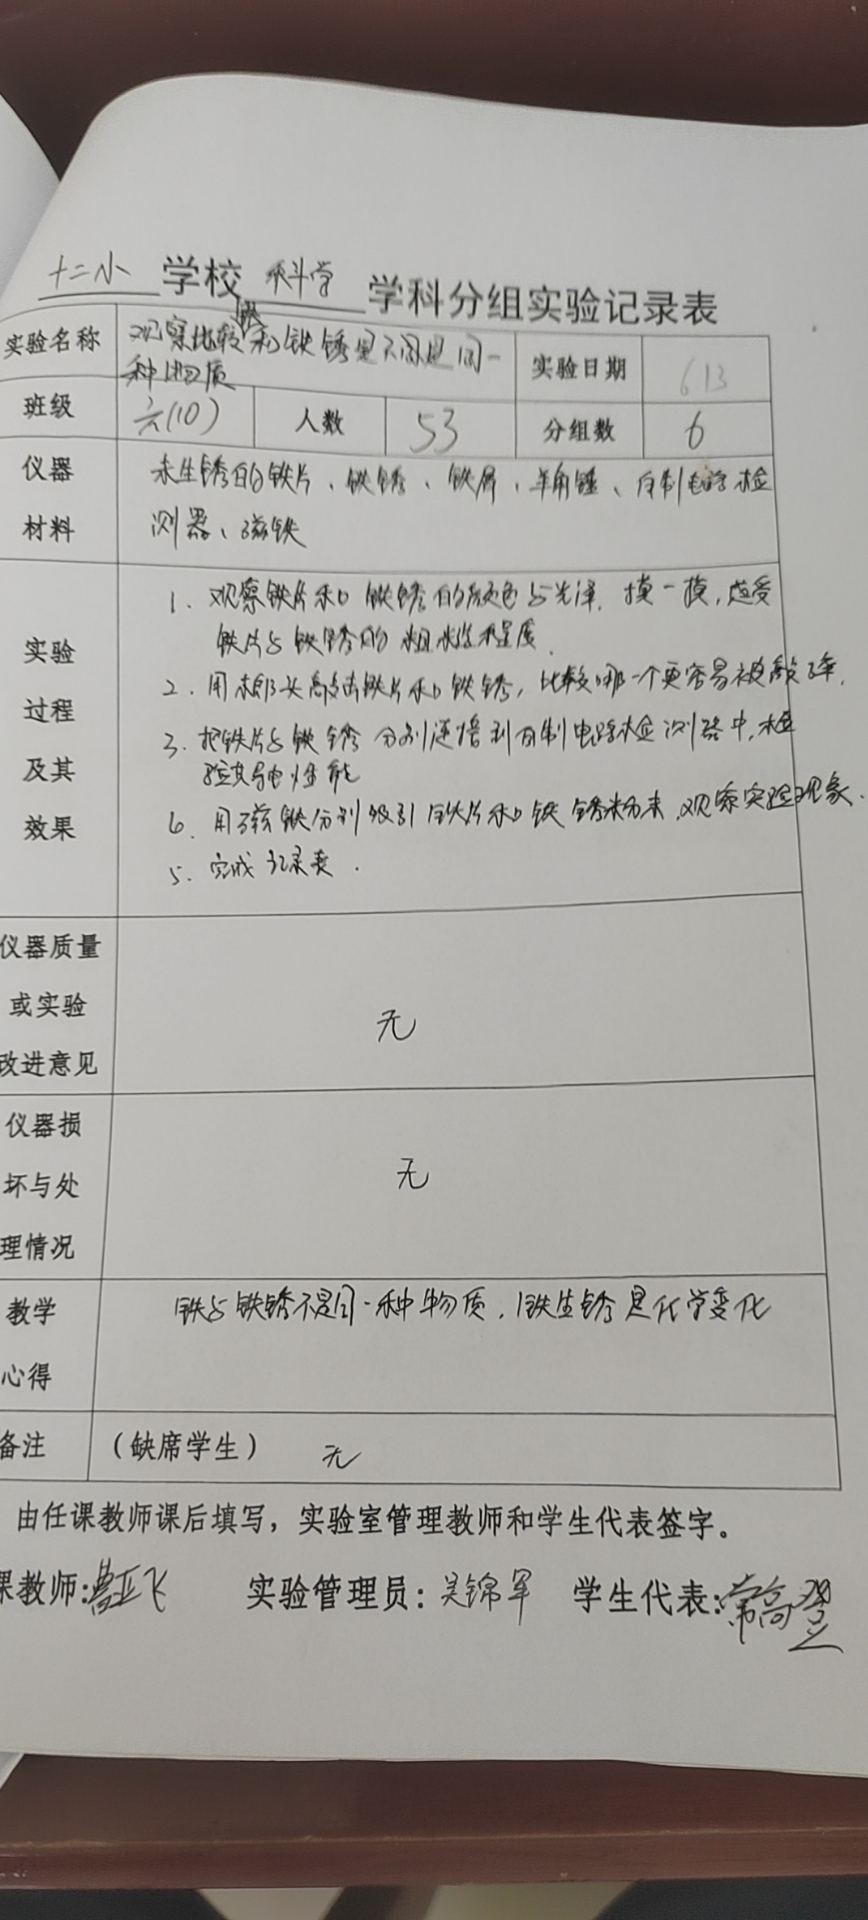 十二小 学校 科学 学科分组实验记录表
实验名称 观察比较铁和铁锈是不同是同一 实验日期 613
种物质
班级 六(10) 人数 53 分组数 6
仪器 未生锈的铁片、铁锈、铁屑、羊角锤、自制电路检
材料 测器、磁铁
1. 观察铁片和铁锈的颜色与光泽，摸一摸，感受
实验 铁片与铁锈的粗糙程度.
2. 用榔头敲击铁片和铁锈，比较哪一个更容易被敲碎.
过程
3. 把铁片与铁锈分别连接到自制电路检测器中，检
及其 验其导电性能
效果 6. 用磁铁分别吸引铁片和铁锈粉末，观察实验现象.
5. 完成记录表.
仪器质量
或实验 无
改进意见
仪器损
坏与处 无
理情况
教学 铁与铁锈不是同一种物质，铁生锈是化学变化
心得
备注 （缺席学生） 无
由任课教师课后填写，实验室管理教师和学生代表签字。
课教师: 飞 实验管理员: 吴锦军 学生代表: 常高